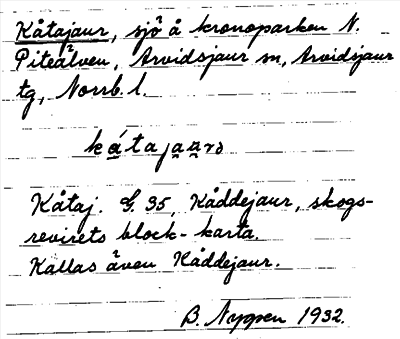 Kåtajaur, sjö å kronoparken N.
Piteälven, Arvidsjaur sn, Arvidsjaur
tg, Norrb. l.
kátajau̯rə
Kåtaj. G. 35, Kåddejaur, skogs-
revirets block-karta.
Kallas även Kåddejaur.
B. Nygren 1932.